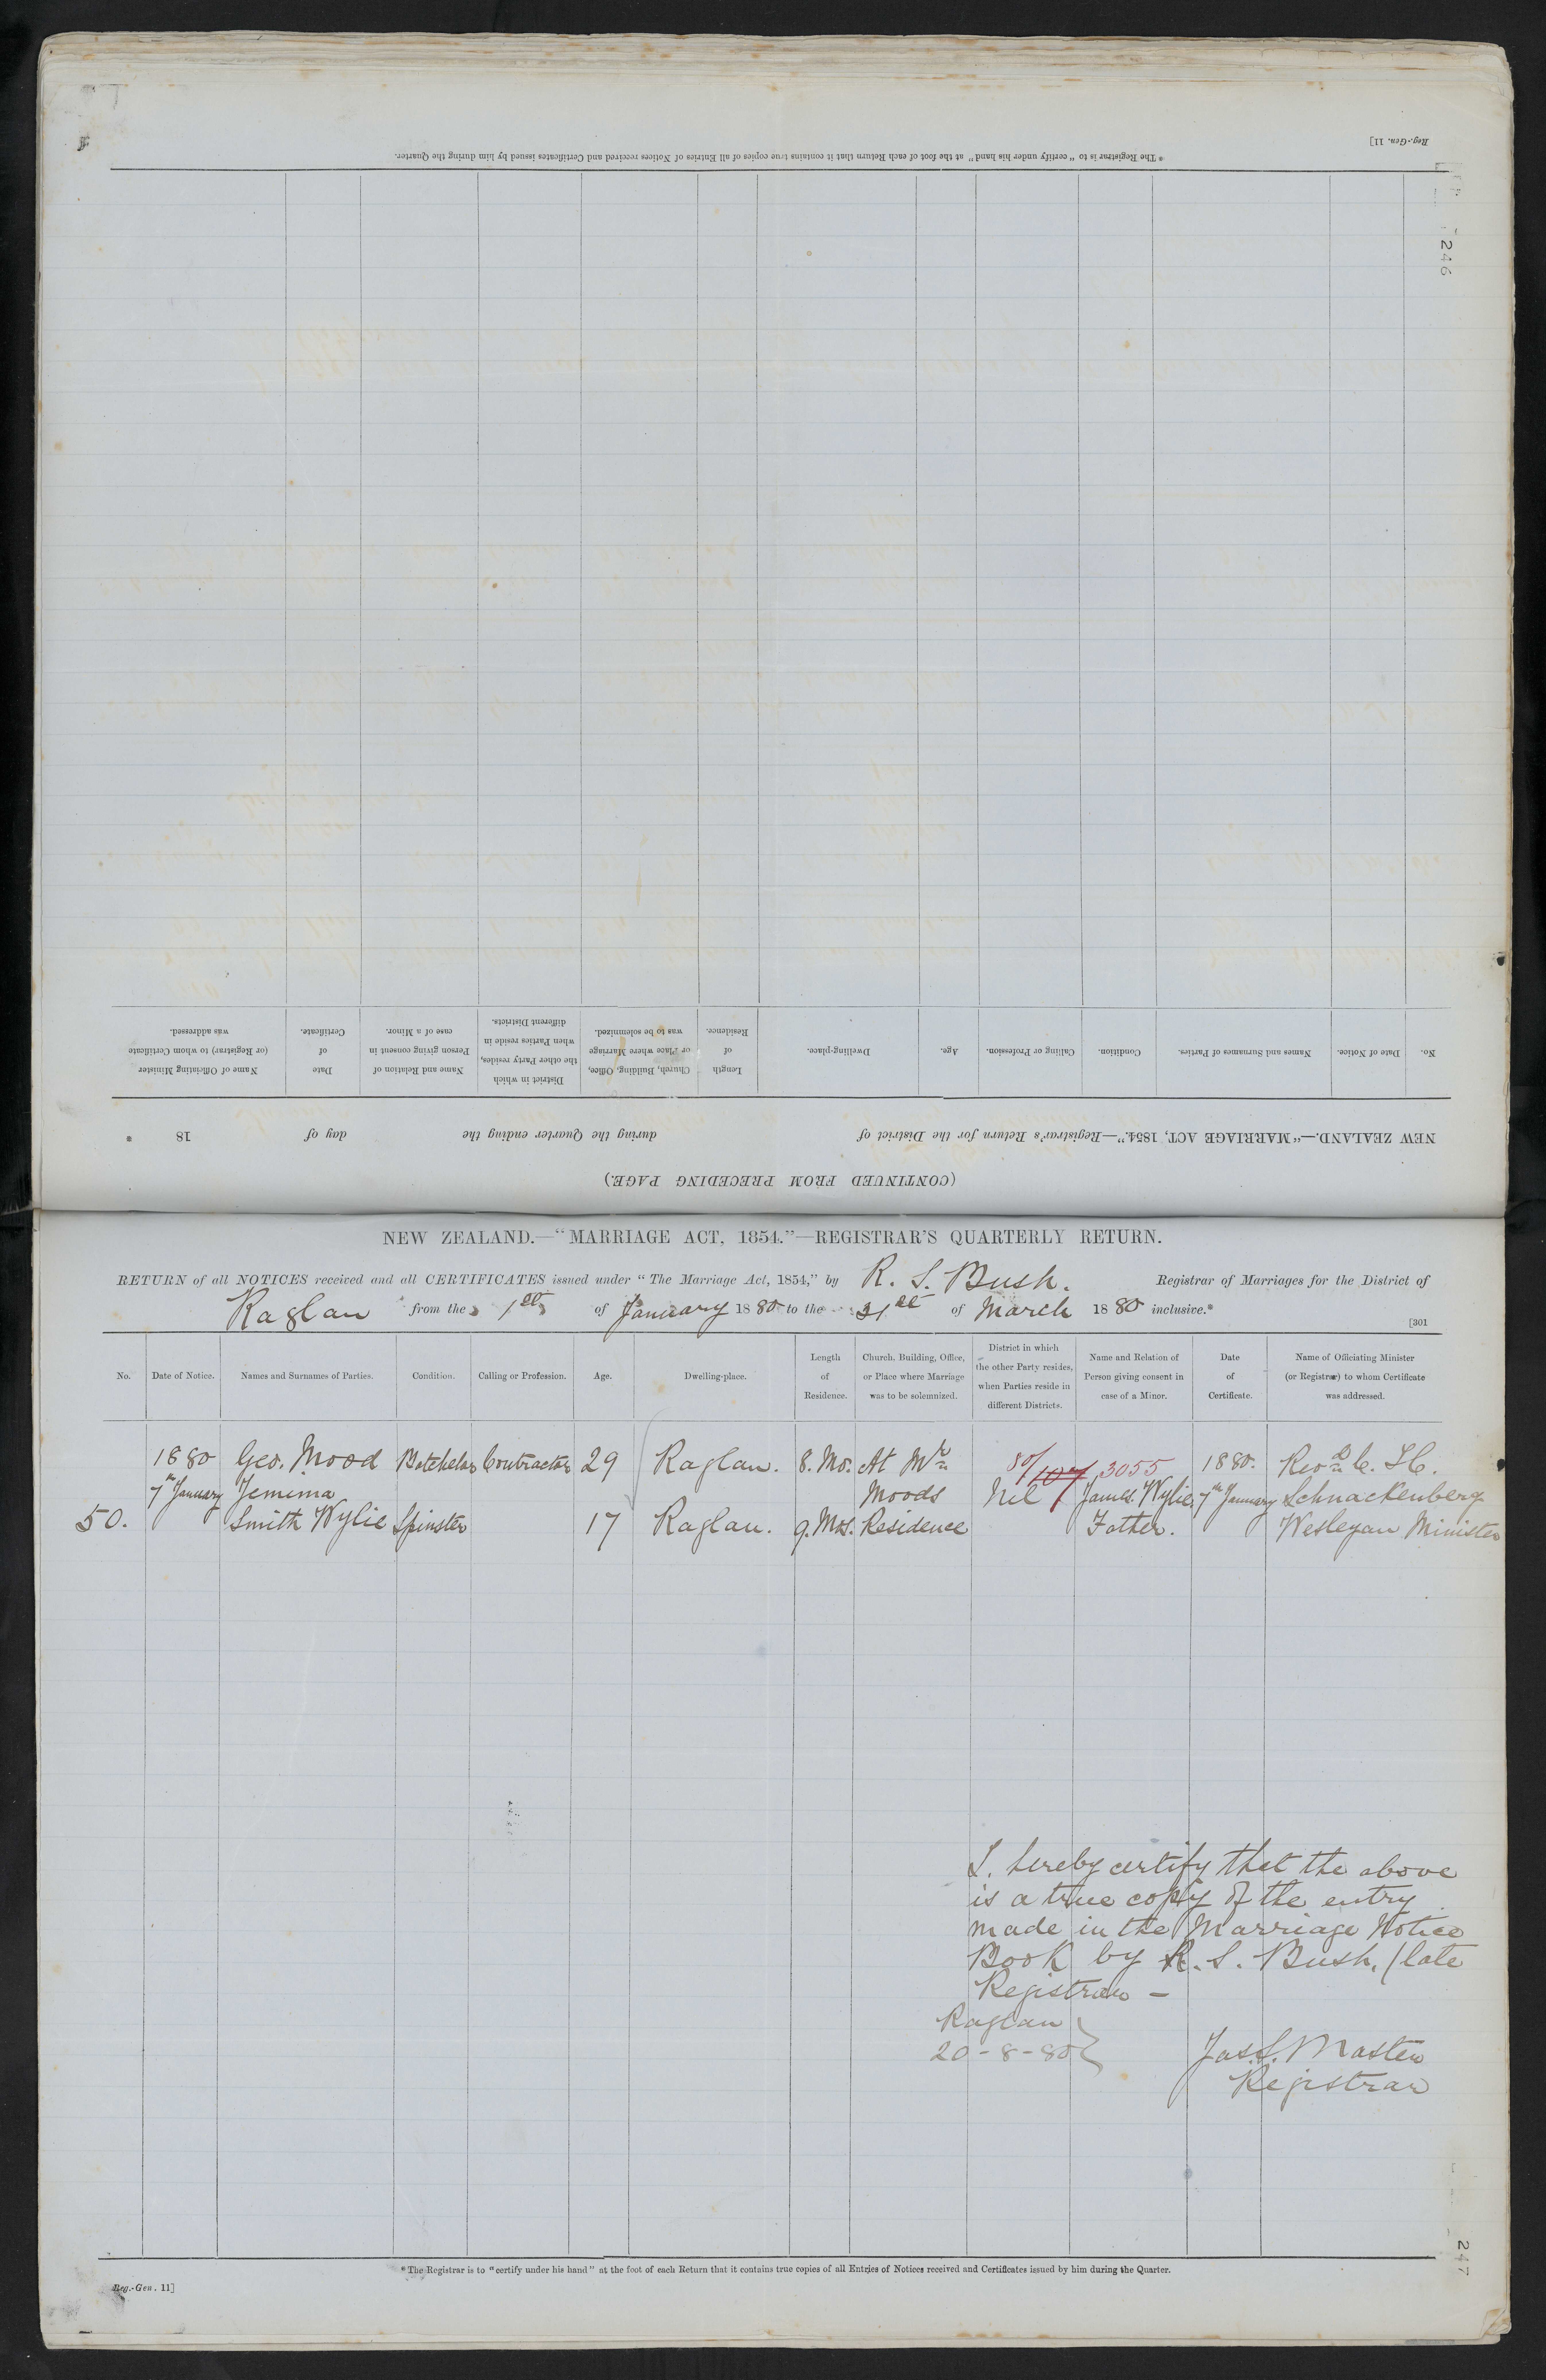 Reg.-Gen. 11]
* The Registrar is to "certify under his hand" at the foot of each Return that it contains true copies of all Entries of Notices received and Certificates issued by him during the Quarter.
246
(CONTINUED FROM PRECEDING PAGE.)
NEW ZEALAND.—"MARRIAGE ACT, 1854."—Registrar's Return for the District of during the Quarter ending the day of 18 *
No. Date of Notice. Names and Surnames of Parties. Condition. Calling or Profession. Age. Dwelling-place. Length of Residence. Church, Building, Office, or Place where Marriage was to be solemnized. District in which the other Party resides, when Parties reside in different Districts. Name and Relation of Person giving consent in case of a Minor. Date of Certificate. Name of Officiating Minister (or Registrar) to whom Certificate was addressed.
NEW ZEALAND.—"MARRIAGE ACT, 1854."—REGISTRAR'S QUARTERLY RETURN.
RETURN of all NOTICES received and all CERTIFICATES issued under "The Marriage Act, 1854," by R. S. Bush. Registrar of Marriages for the District of
Raglan from the 1st of January 1880 to the 31st of March 1880 inclusive.*
[301
No. Date of Notice. Names and Surnames of Parties. Condition. Calling or Profession. Age. Dwelling-place. Length of Residence. Church, Building, Office, or Place where Marriage was to be solemnized. District in which the other Party resides, when Parties reside in different Districts. Name and Relation of Person giving consent in case of a Minor. Date of Certificate. Name of Officiating Minister (or Registrar) to whom Certificate was addressed.
1880 Geo. Mood Batchelor Contractor 29 Raglan. 8. Mo. At Mr 80/107 3055 1880. Revd C. H.
7th January Jemima Moods Nil James Wylie 7th January Schnackenberg
50. Smith Wylie Spinster 17 Raglan. 9. Mos. Residence Father. Wesleyan Minister
I. hereby certify that the above
is a true copy of the entry
made in the Marriage Notice
Book by R. S. Bush, late
Registrar –
Raglan
20-8-80
Jas. S. Master
Registrar
* The Registrar is to "certify under his hand" at the foot of each Return that it contains true copies of all Entries of Notices received and Certificates issued by him during the Quarter.
Reg.-Gen. 11]
247